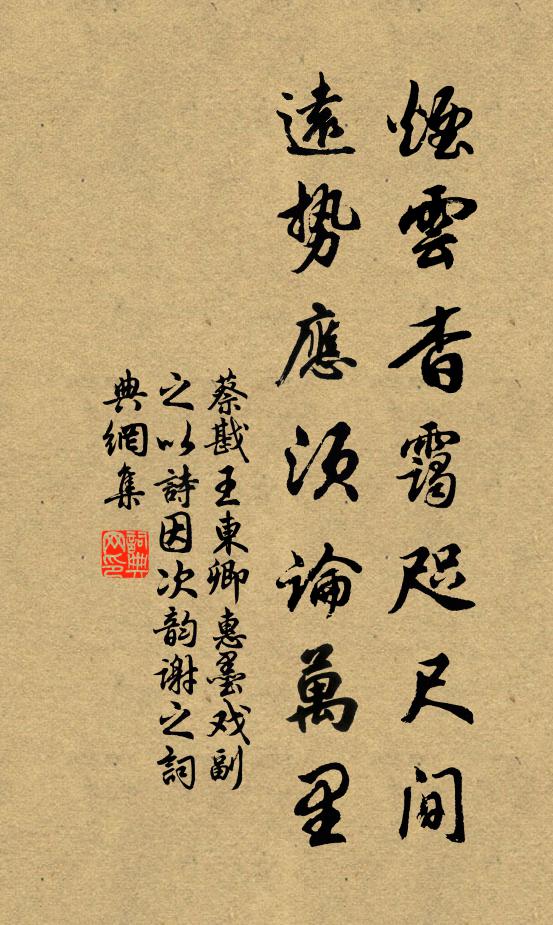 煙雲杳靄咫尺间
遠势應須論萬里
蔡戡王東卿惠墨戏副
之以詩因次韵謝之詞
典網集
詞典
网印